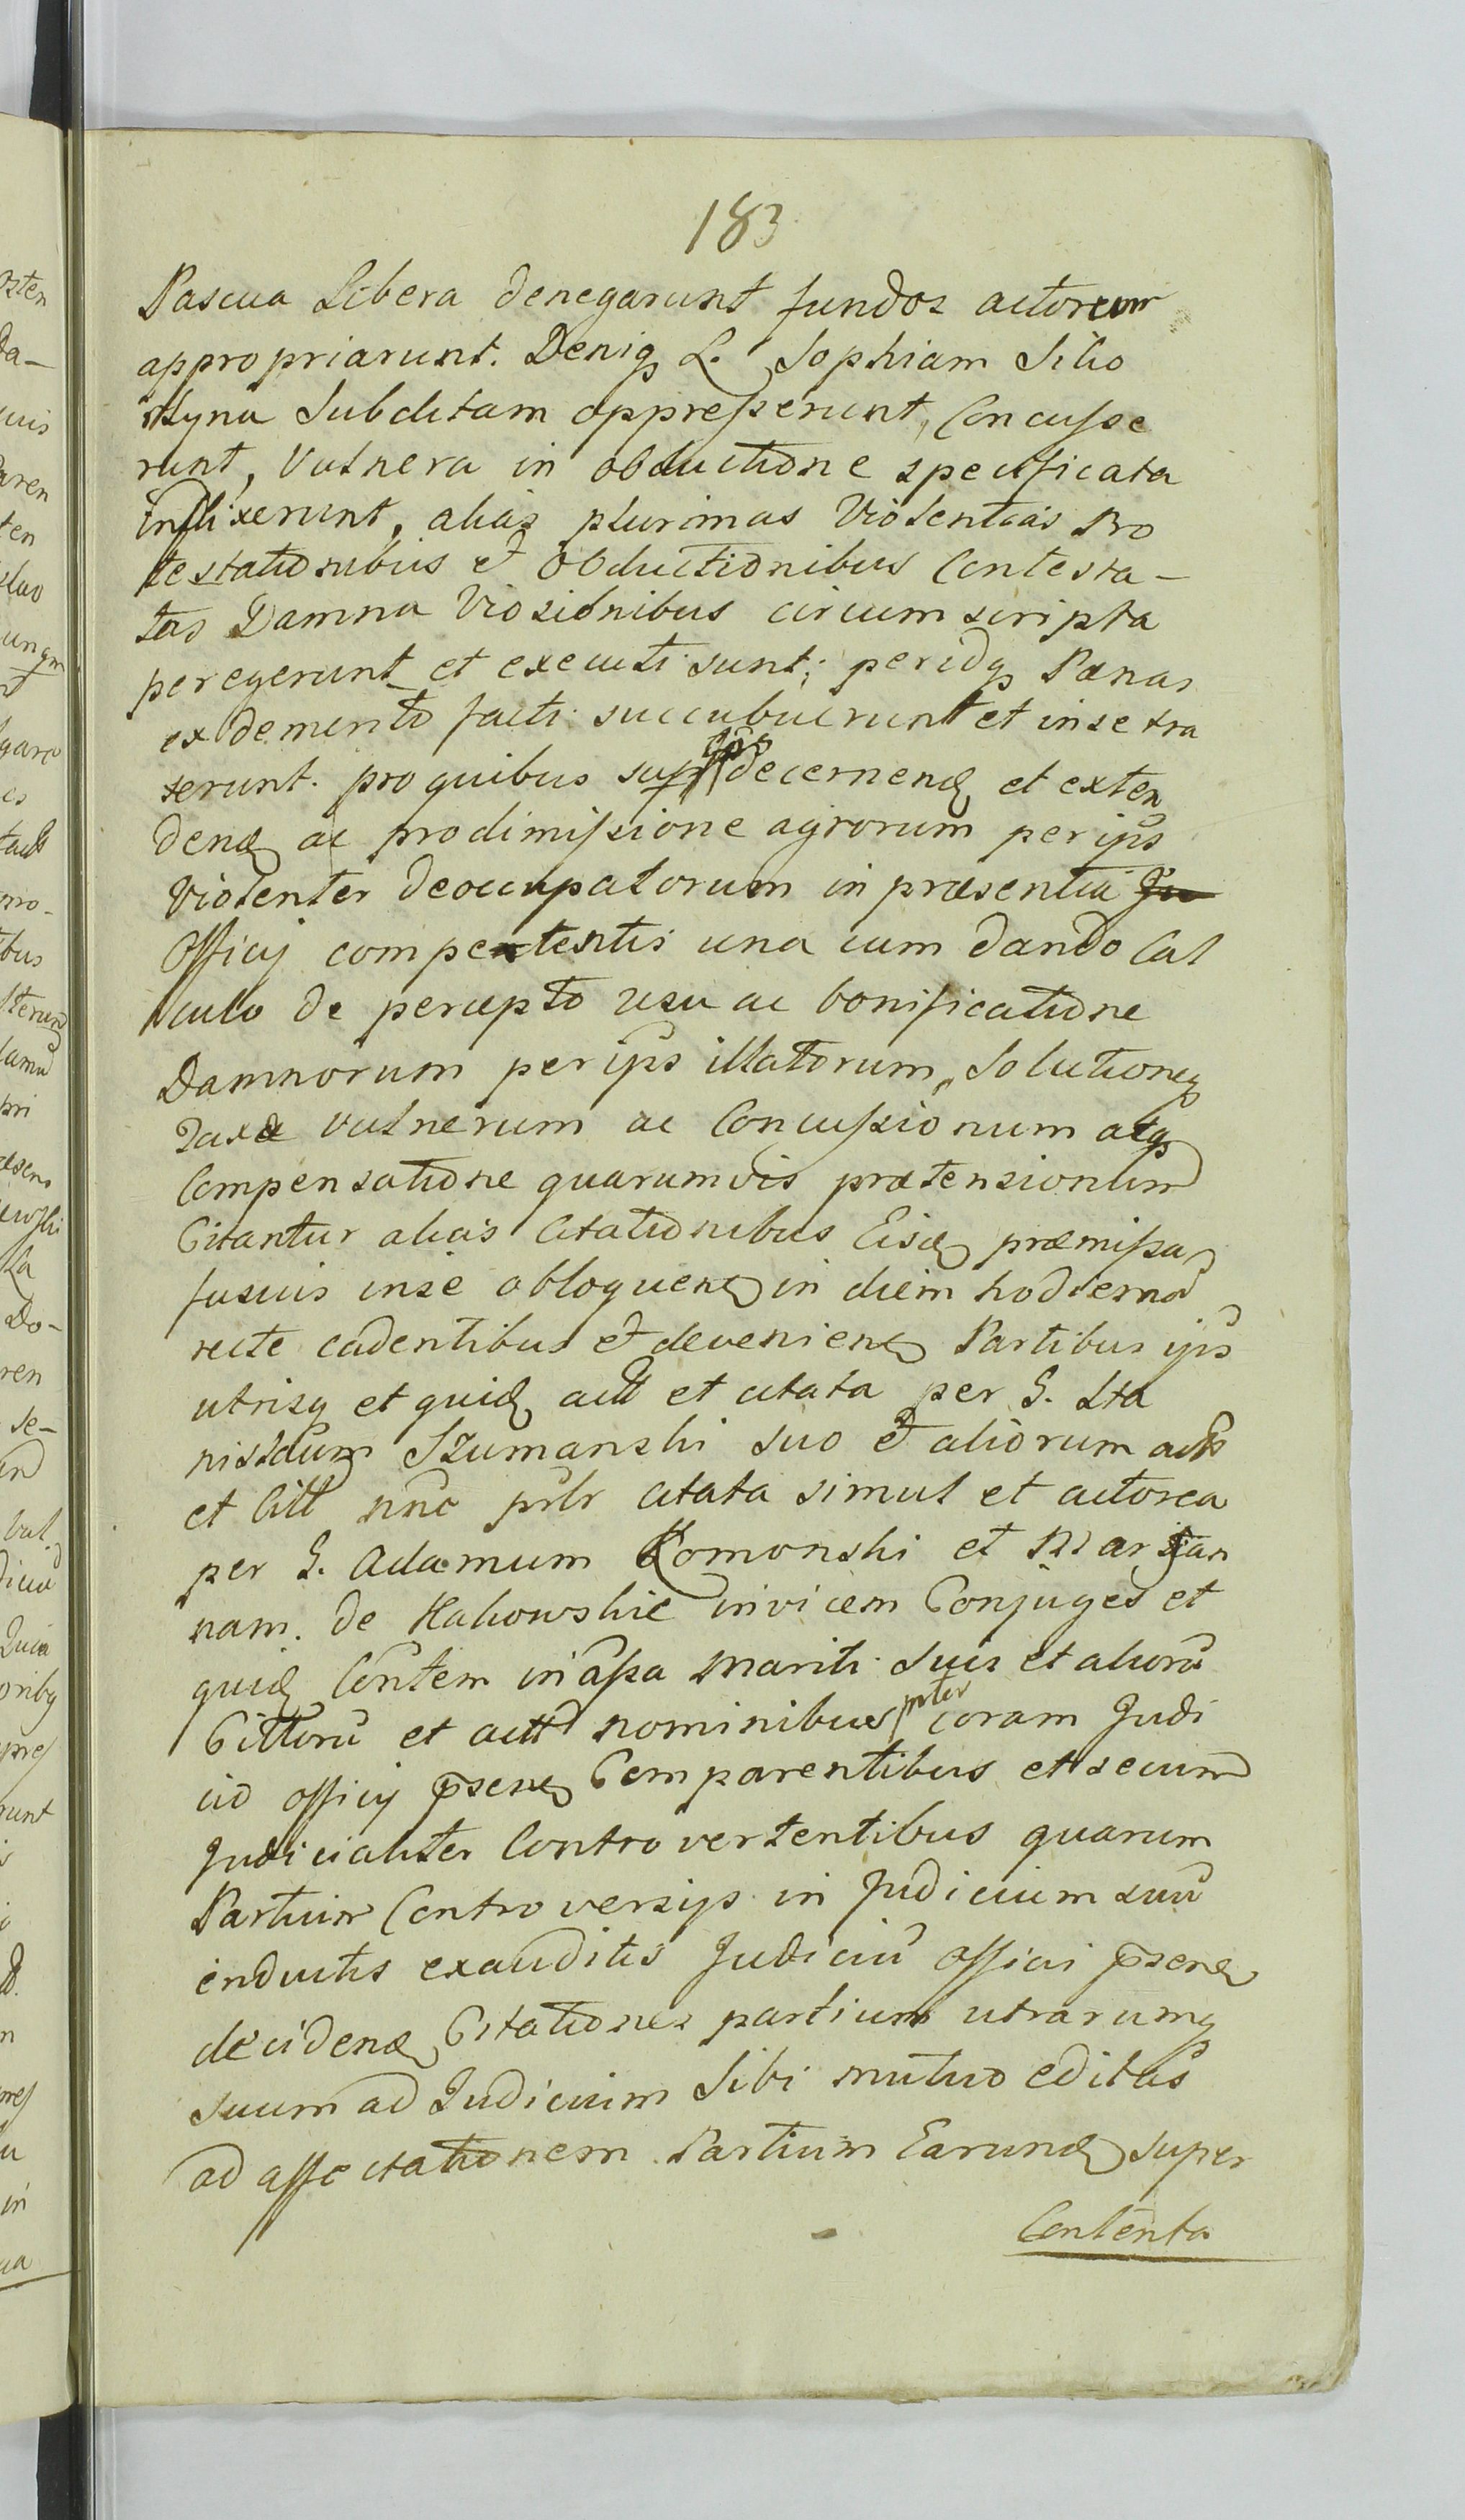 183
Pascua Libera denegarunt fundos actoreum
appropriarunt. Deniq L. Sophiam Silio
rtkyna Subditam oppresserunt, Concusse
runt, Vulnera in obductione specificata
inflixerunt, alias plurimas Violentias Pro
testationibus et Obductionibus Contesta-
tas Damna Visionibus circumscripta
peregerunt et executi sunt; peridq Pænas
ex demerito facti succubuerunt et in se tra
xerunt. pro quibus ipis decernend et exten
dend ac pro dimissione agrorum per ips
Violenter deoccupatorum in præsentia Ju
Officij competentis una cum dando Cal
culo de percepto usu ac bonificatione
Damnorum per ips illatorum, Solutioneq
Taxæ vulnerum ac Concussionum atq
Compensatione quarumvis prætensionum
Citantur alias Citationibus Eisd præmissa
fusius in se obloquend in diem hodierna
recte cadentibus et deveniend Partibus ips
utrisq et quid actt et citata per G. Sta
nislaum Szumanski suo et aliorum actt
et Citt nnc prlr citata simul et actorea
per G. Adamum Komonski et Marjan
nam de Makowskie invicem Conjuges et
quid Contem in assa Mariti Suis et alioru
Cittoru et actt nominibus prter coram Judi
cio officij psend Comparentibus et secum
Judicialiter Controvertentibus quarum
Partium Controversijs in Judicium suu
inductis exauditis Judiciu Officii psens
decidend Citationes partium utrarumq
suum ad Judicium Sibi mutuo editas
ad affectationem Partium Earund super
Contenta